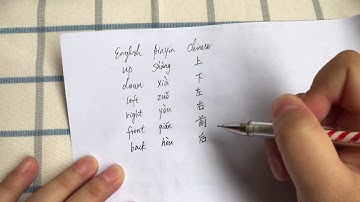 English Pinyin Chinese
up shàng 上
down xià 下
left zuǒ 左
right yòu 右
front qián 前
back hòu 后